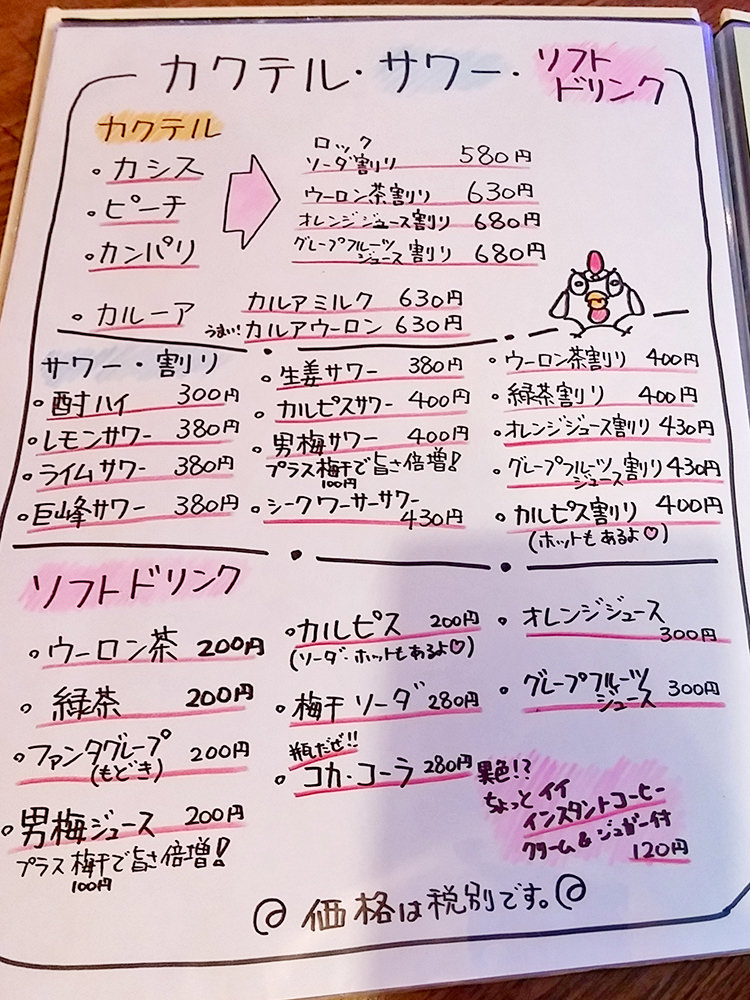 カクテル・サワー・ソフト
ドリンク
カクテル
・カシス
・ピーチ
・カンパリ
ロック
ソーダ割り 580円
ウーロン茶割り 630円
オレンジジュース割り 680円
グレープフルーツ
ジュース割り 680円
・カルーア
カルアミルク 630円
うまい!カルアウーロン 630円
サワー・割り
・酎ハイ 300円
・レモンサワー 380円
・ライムサワー 380円
・巨山峰サワー 380円
・生姜サワー 380円
・カルピスサワー 400円
・男梅サワー 400円
プラス梅干で旨さ倍増!
100円
・シークワーサーサワー
430円
・ウーロン茶割り 400円
・緑茶割り 400円
・オレンジジュース割り 430円
・グレープフルーツ
ジュース割り 430円
・カルピス割り 400円
(ホットもあるよ♡)
ソフトドリンク
・ウーロン茶 200円
・緑茶 200円
・ファンタグレープ 200円
(もどき)
・男梅ジュース 200円
プラス梅干で旨さ倍増!
100円
・カルピス 200円
(ソーダ・ホットもあるよ♡)
・梅干ソーダ 280円
瓶だぜ!!
・コカ・コーラ 280円
・オレンジジュース
300円
・グレープフルーツ
ジュース 300円
黒色!?
ちょっとイイ
インスタントコーヒー
クリーム&シュガー付
120円
価格は税別です。